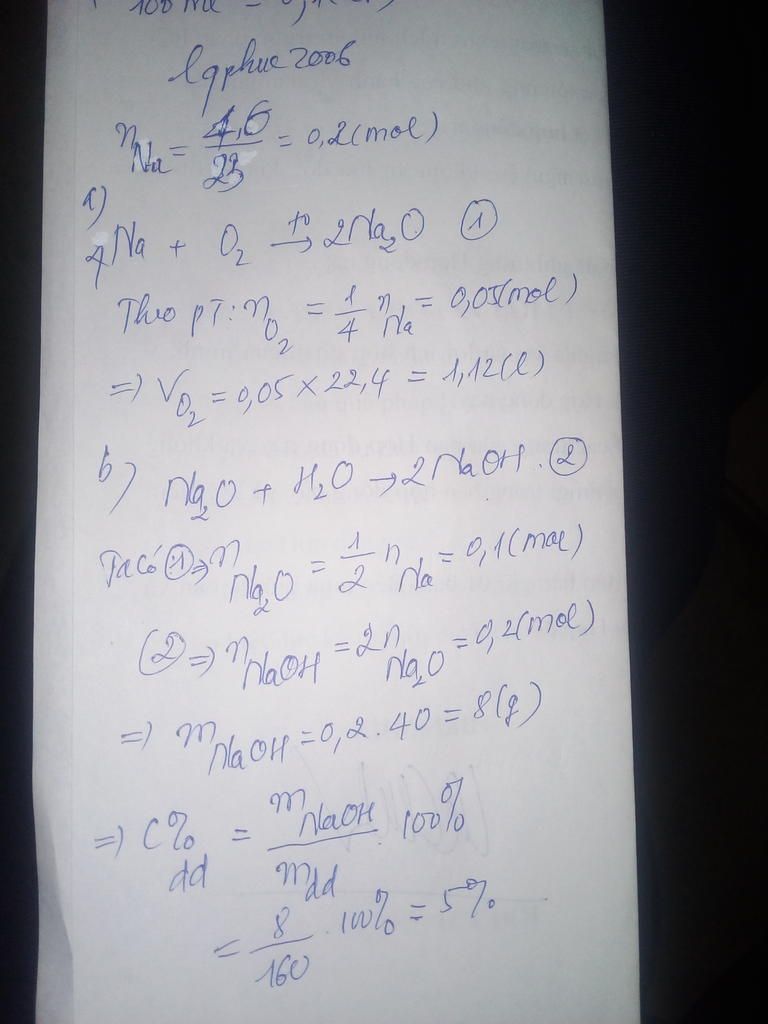 100 ml = 0,1(l)
lqphuc2006
nNa = 4,6/23 = 0,2(mol)
a)
4Na + O2 t0→ 2Na2O ①
Theo pT: nO2 = 1/4 nNa = 0,05(mol)
=> VO2 = 0,05 × 22,4 = 1,12(l)
b) Na2O + H2O → 2NaOH. ②
Ta có ① => nNa2O = 1/2 nNa = 0,1(mol)
② => nNaOH = 2nNa2O = 0,2(mol)
=> mNaOH = 0,2 . 40 = 8(g)
=> C%dd = mNaOH/mdd . 100%
= 8/160 . 100% = 5%